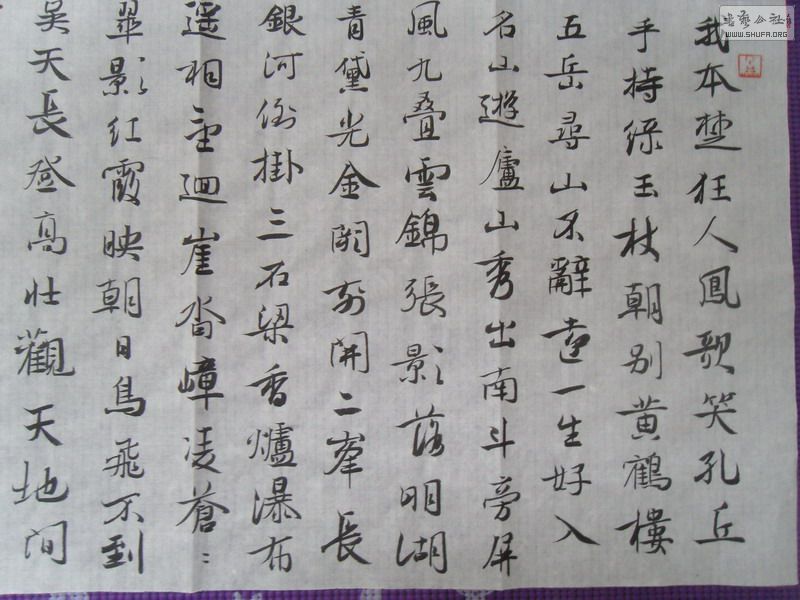 我本楚狂人鳳歌笑孔丘
手持綠玉杖朝別黄鶴樓
五岳尋山不辭遠一生好入
名山遊廬山秀出南斗旁屏
風九叠雲錦張影落明湖
青黛光金闕前開二峯長
銀河倒掛三石梁香爐瀑布
遥相望迴崖沓嶂凌蒼:
翠影红霞映朝日鳥飛不到
吴天長登高壮觀天地间
书艺公社
WWW.SHUFA.ORG